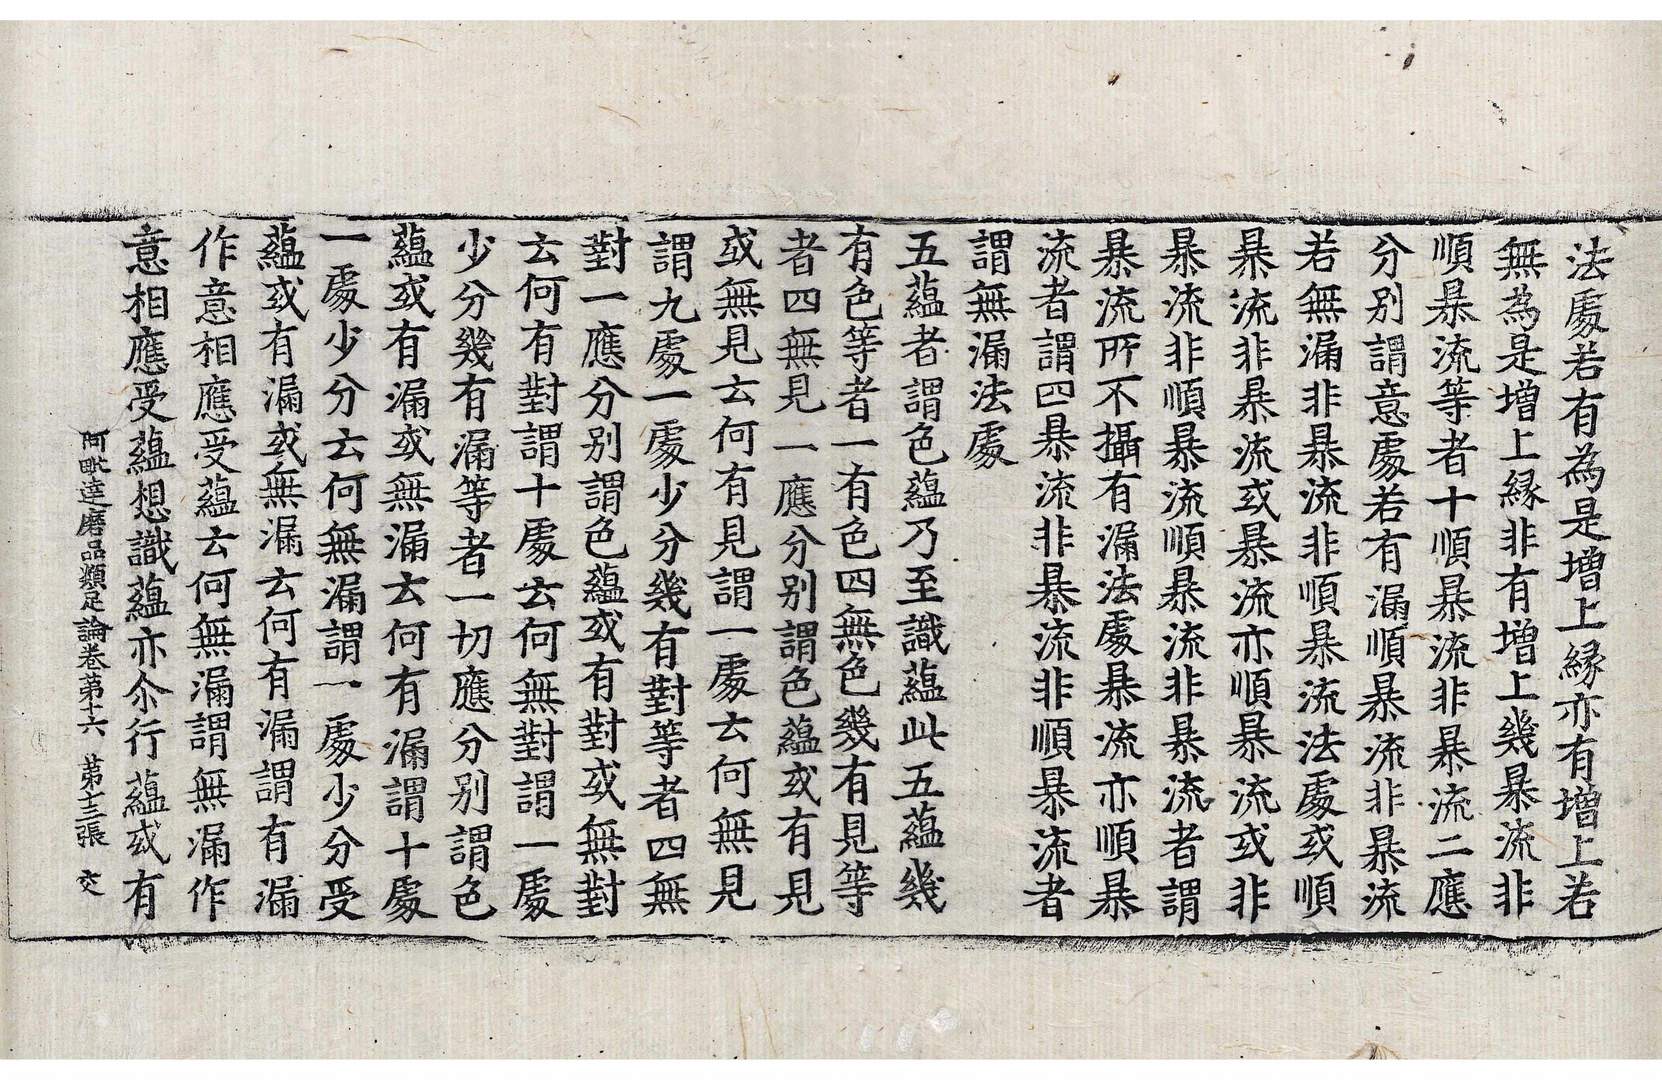 法處若有為是增上縁亦有增上若
無為是增上縁非有增上幾暴流非
順暴流等者十順暴流非暴流二應
分別謂意處若有漏順暴流非暴流
若無漏非暴流非順暴流法處或順
暴流非暴流或暴流亦順暴流或非
暴流非順暴流順暴流非暴流者謂
暴流所不攝有漏法處暴流亦順暴
流者謂四暴流非暴流非順暴流者
謂無漏法處
五蘊者謂色蘊乃至識蘊此五蘊幾
有色等者一有色四無色幾有見等
者四無見一應分別謂色蘊或有見
或無見云何有見謂一處云何無見
謂九處一處少分幾有對等者四無
對一應分別謂色蘊或有對或無對
云何有對謂十處云何無對謂一處
少分幾有漏等者一切應分別謂色
蘊或有漏或無漏云何有漏謂十處
一處少分云何無漏謂一處少分受
蘊或有漏或無漏云何有漏謂有漏
作意相應受蘊云何無漏謂無漏作
意相應受蘊想識蘊亦尒行蘊或有
阿毗達磨品類足論卷第十六 第十三張 交